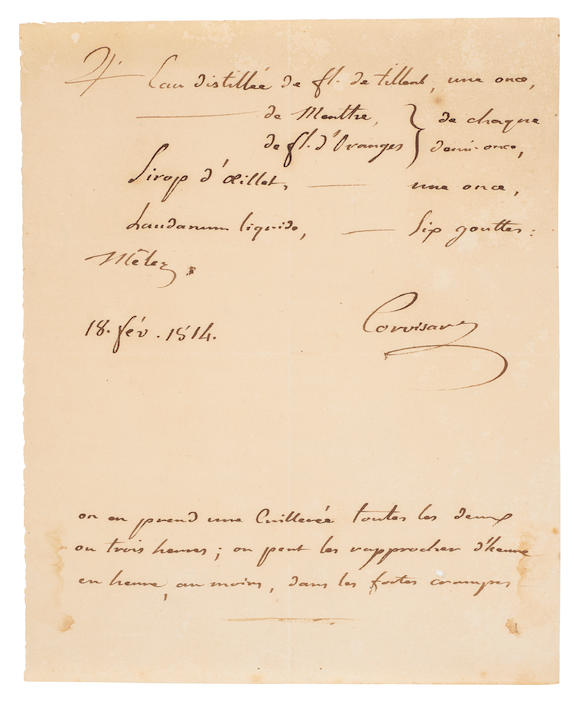 ♃ Eau distillée de fl. de tilleul, une once,
——— de Menthe, } de chaque
de fl. d'Oranges } demi-once,
Sirop d'Œillets, —— une once,
Laudanum liquide, —— Six gouttes:
Mêlez.
18. fév. 1814.
Corvisart
on en prend une Cuillerée toutes les deux
ou trois heures; on peut les rapprocher d'heure
en heure, au moins, dans les fortes crampes